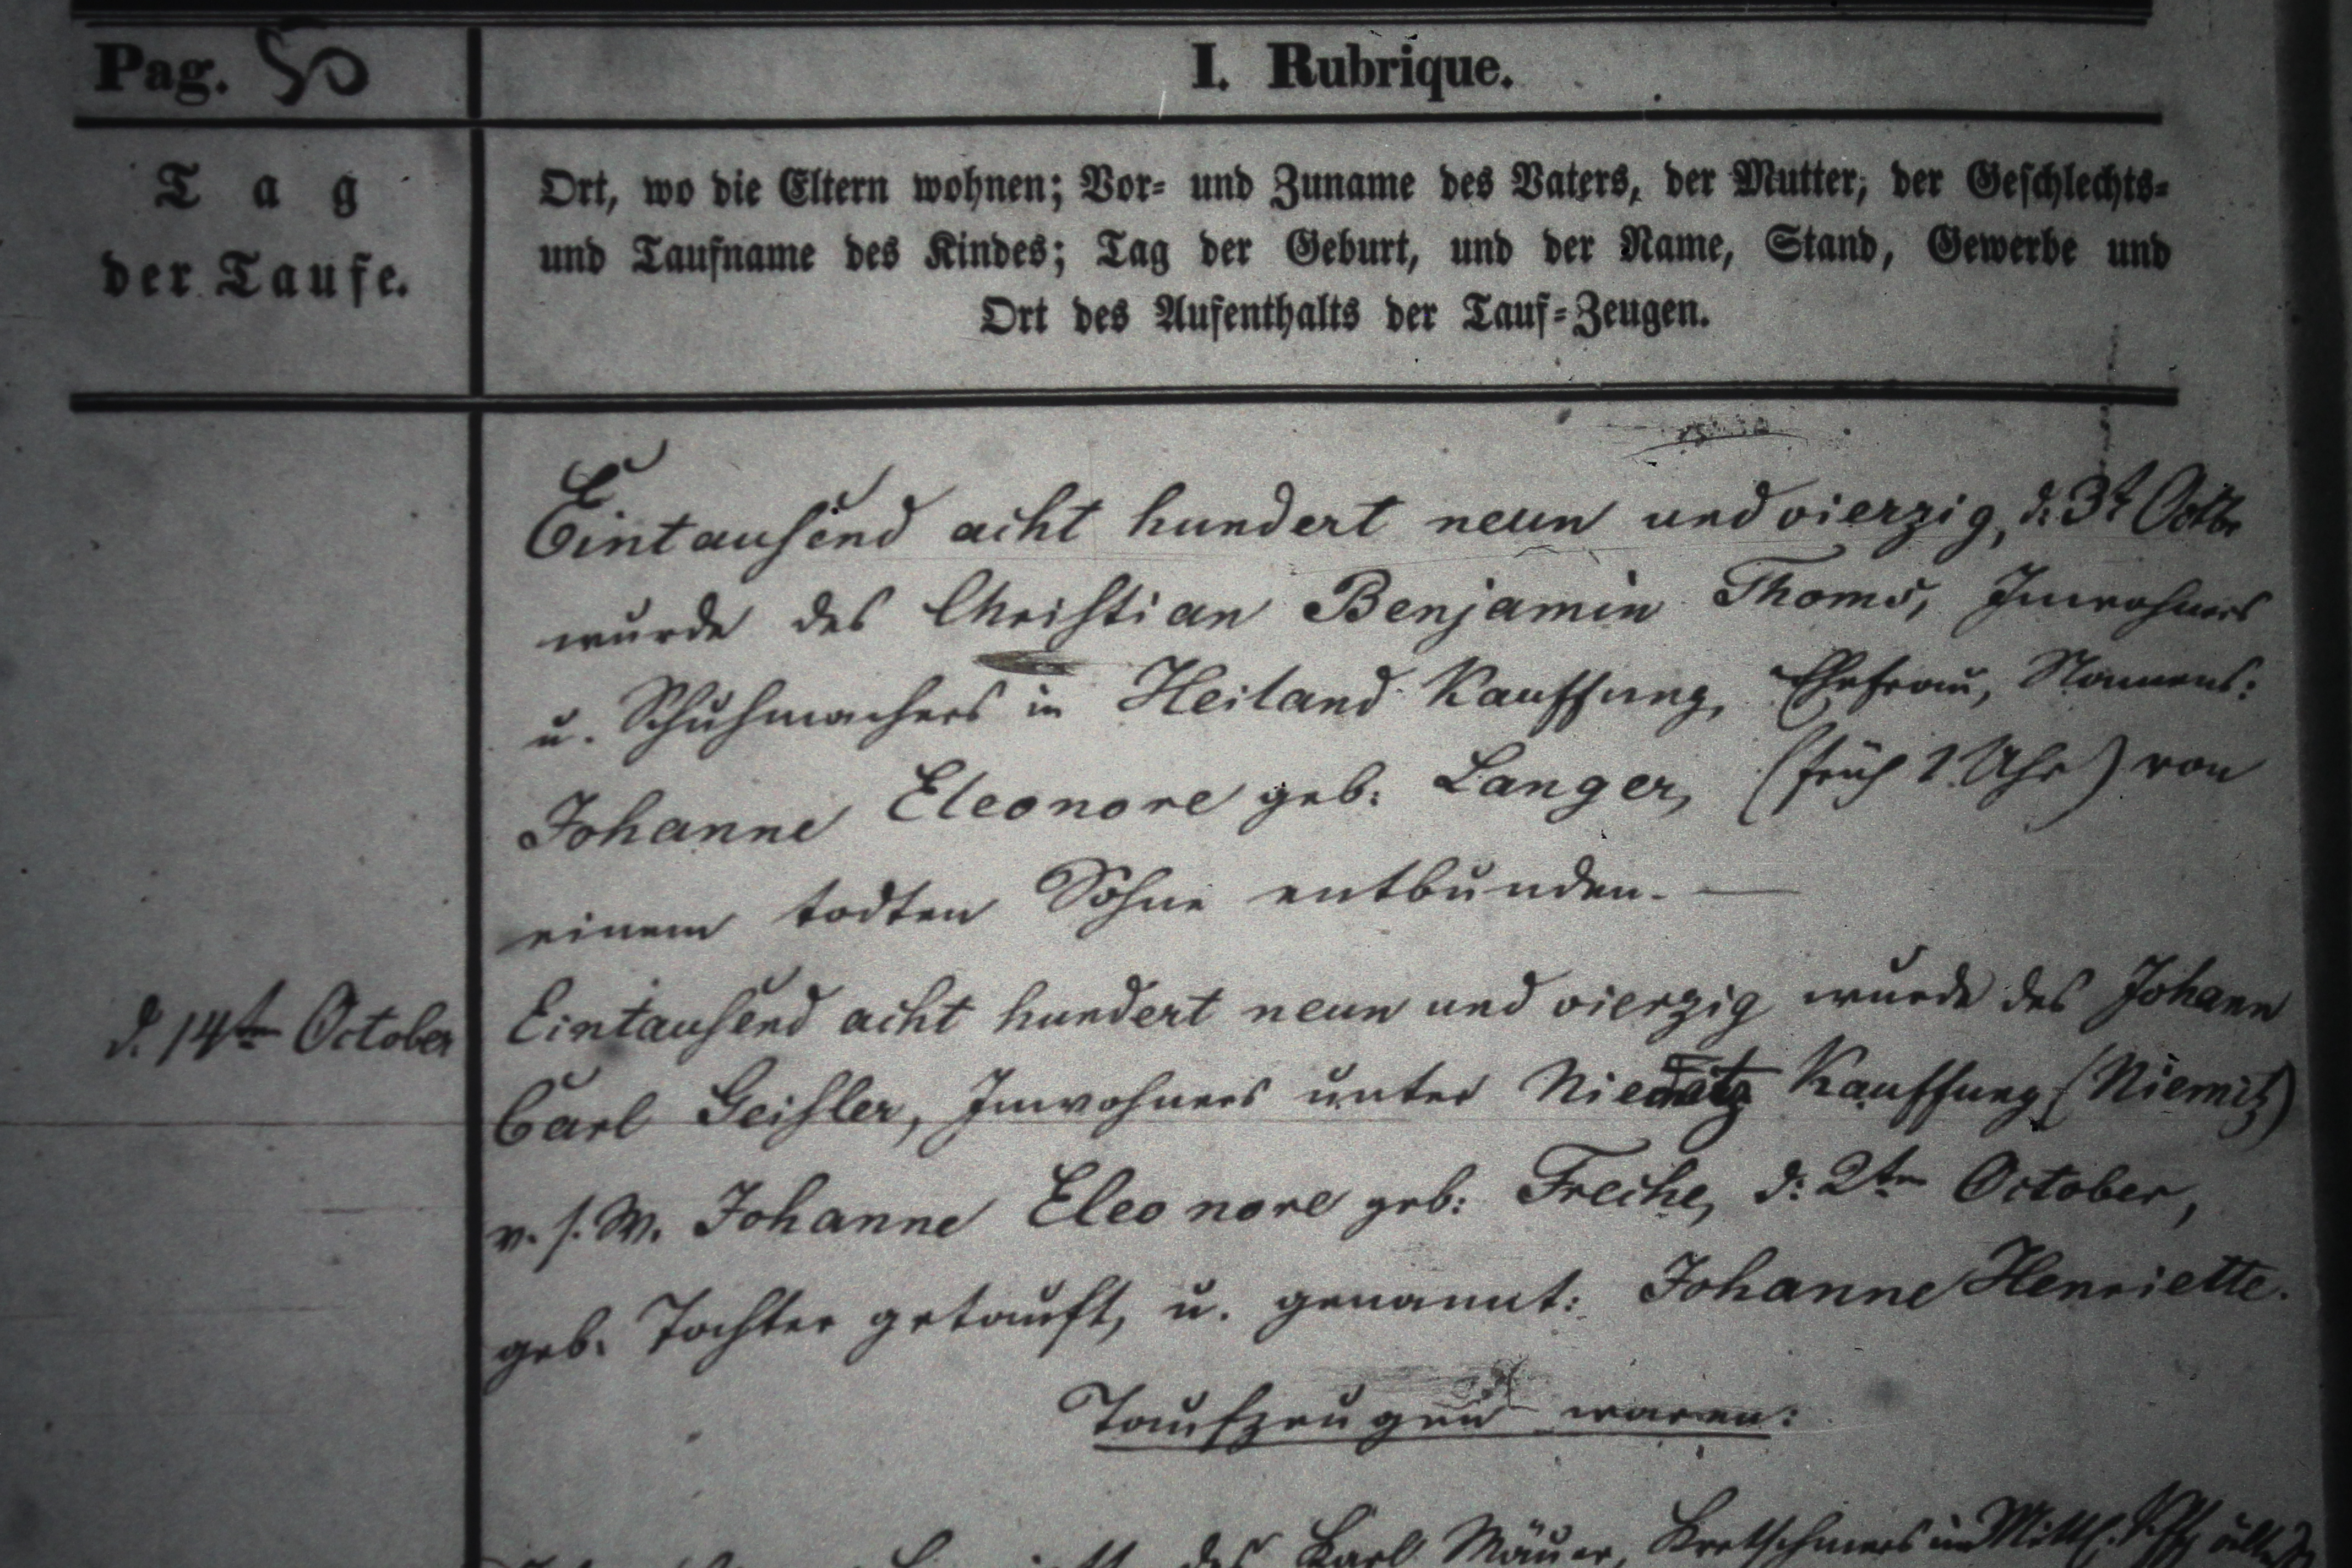 Pag. 50
I. Rubrique.
Tag
der Taufe.
Ort, wo die Eltern wohnen; Vor- und Zuname des Vaters, der Mutter; der Geschlechts-
und Taufname des Kindes; Tag der Geburt, und der Name, Stand, Gewerbe und
Ort des Aufenthalts der Tauf-Zeugen.
Eintausend acht hundert neun und vierzig, d. 3t Octbr
wurde des Christian Benjamin Thoms, Inwohners
u. Schuhmachers in Heiland Kauffung, Ehefrau, Namens:
Johanne Eleonore geb: Langer, (früh 1 Uhr) von
einem todten Sohne entbunden. —
d. 14ten October
Eintausend acht hundert neun und vierzig wurde des Johann
Carl Geisler, Inwohners unter Kauffung (Niemitz)
v. s. W. Johanne Eleonore geb: Freche, d: 2ten October,
geb. Tochter getauft, u. genannt: Johanne Henriette.
Taufzeugen waren:
des Karl Mäuer, Kretschmers in